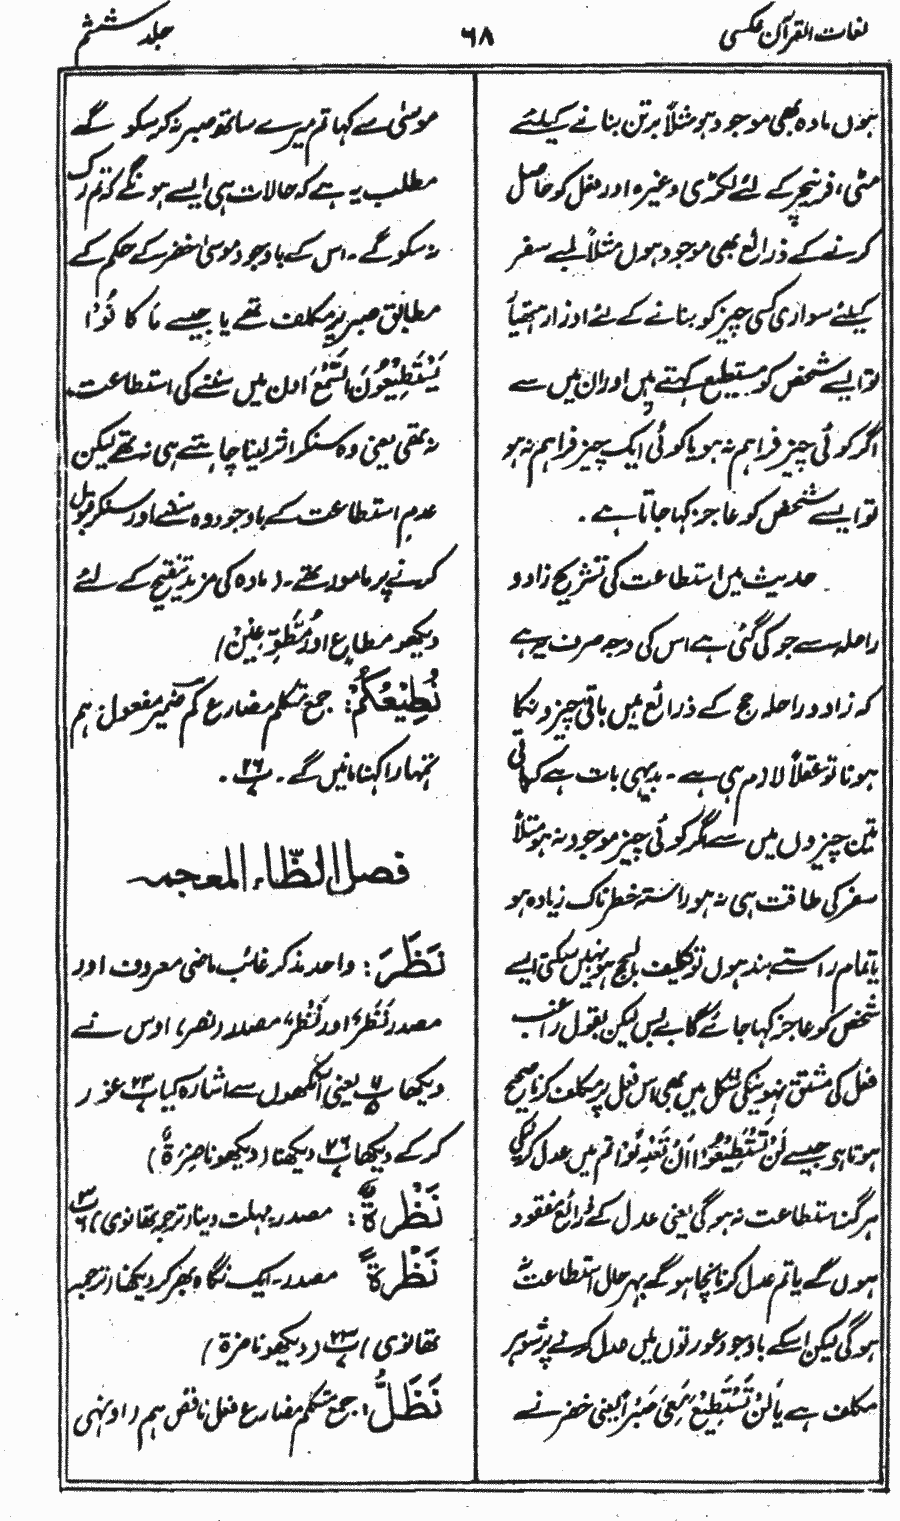 لغات القرآن عکسی
۶۸
جلد ششم
ہوں مادہ بھی موجود ہو مثلاً برتن بنانے کیلئے
مٹی، فرنیچر کے لئے لکڑی وغیرہ اور فعل کو حاصل
کرنے کے ذرائع بھی موجود ہوں مثلاً لمبے سفر
کیلئے سواری کسی چیز کو بنانے کے لئے اوزار ہتھیار
تو ایسے شخص کو مستطیع کہتے ہیں اور ان میں سے
اگر کوئی چیز فراہم نہ ہو یا کوئی ایک چیز فراہم نہ ہو
تو ایسے شخص کو عاجز کہا جاتا ہے۔
حدیث میں استطاعت کی تشریح زاد و
راحلہ سے جو کی گئی ہے اس کی وجہ صرف یہ ہے
کہ زاد و راحلہ حج کے ذرائع ہیں باقی چیزوں کا
ہونا تو عقلاً لازم ہی ہے۔ بدیہی بات ہے کہ اگر
تین چیزوں میں سے کوئی چیز موجود نہ ہو مثلاً
سفر کی طاقت ہی نہ ہو راستہ خطرناک زیادہ ہو
یا تمام راستے بند ہوں تو تکلیف بالحج ہو نہیں سکتی ایسے
شخص کو عاجز کہا جائے گا بے بس لیکن بقول راغب
فعل کی مشق نہ ہونیکی شکل میں بھی اس فعل پر مکلف کرنا صحیح
ہوتا ہو جیسے لَنْ تَسْتَطِیْعُوْا اَنْ تَعْدِلُوْا تم میں عدل کرنیکی
ہرگز استطاعت نہ ہوگی یعنی عدل کے ذرائع مفقود
ہوں گے یا تم عدل کرنا نچاہو گے بہرحال استطاعت نہ
ہوگی لیکن اسکے باوجود عورتوں میں عدل کرنے پر شوہر
مکلف ہے یا لَنْ تَسْتَطِیْعَ مَعِیَ صَبْرًا یعنی خضر نے
موسیٰ سے کہا تم میرے ساتھ صبر نہ کر سکو گے
مطلب یہ ہے کہ حالات ہی ایسے ہونگے کہ تم رک
نہ سکو گے۔ اس کے باوجود موسیٰ خضر کے حکم کے
مطابق صبر پر مکلف تھے یا جیسے مَا کَا نُوْا
یَسْتَطِیْعُوْنَ السَّمْعَ اون میں سننے کی استطاعت
نہ تھی یعنی وہ سنکر اثر لینا چاہتے ہی نہ تھے لیکن
عدم استطاعت کے باوجود وہ سننے اور سنکر قبول
کرنے پر مامور تھے۔ (مادہ کی مزید تنقیح کے لئے
دیکھو مطاع اور مُطَّوِّعِیْنَ)
نُطِیْعُکُمْ: جمع متکلم مضارع کم ضمیر مفعول ہم
تمہارا کہنا مانیں گے۔ پ۲۶۔
فصل الظّاء المعجمہ
نَظَرَ: واحد مذکر غائب ماضی معروف اور
مصدر نَظَرٌ اور نَظْرٌ مصدر (نصر) اوس نے
دیکھا پ۱۱ یعنی آنکھوں سے اشارہ کیا پ۲۳ غور
کر کے دیکھا پ۲۶ دیکھنا (دیکھو ناضِرَۃٌ)
نَظِرَۃٌ: مصدر، مہلت دینا (ترجمہ تھانوی) پ۳
نَظْرَۃً مصدر۔ ایک نگاہ بھر کر دیکھنا (ترجمہ
تھانوی) پ۲۳ (دیکھو ناضرۃ)
نَظَلُّ: جمع متکلم مضارع فعل ناقص ہم (اوینہی